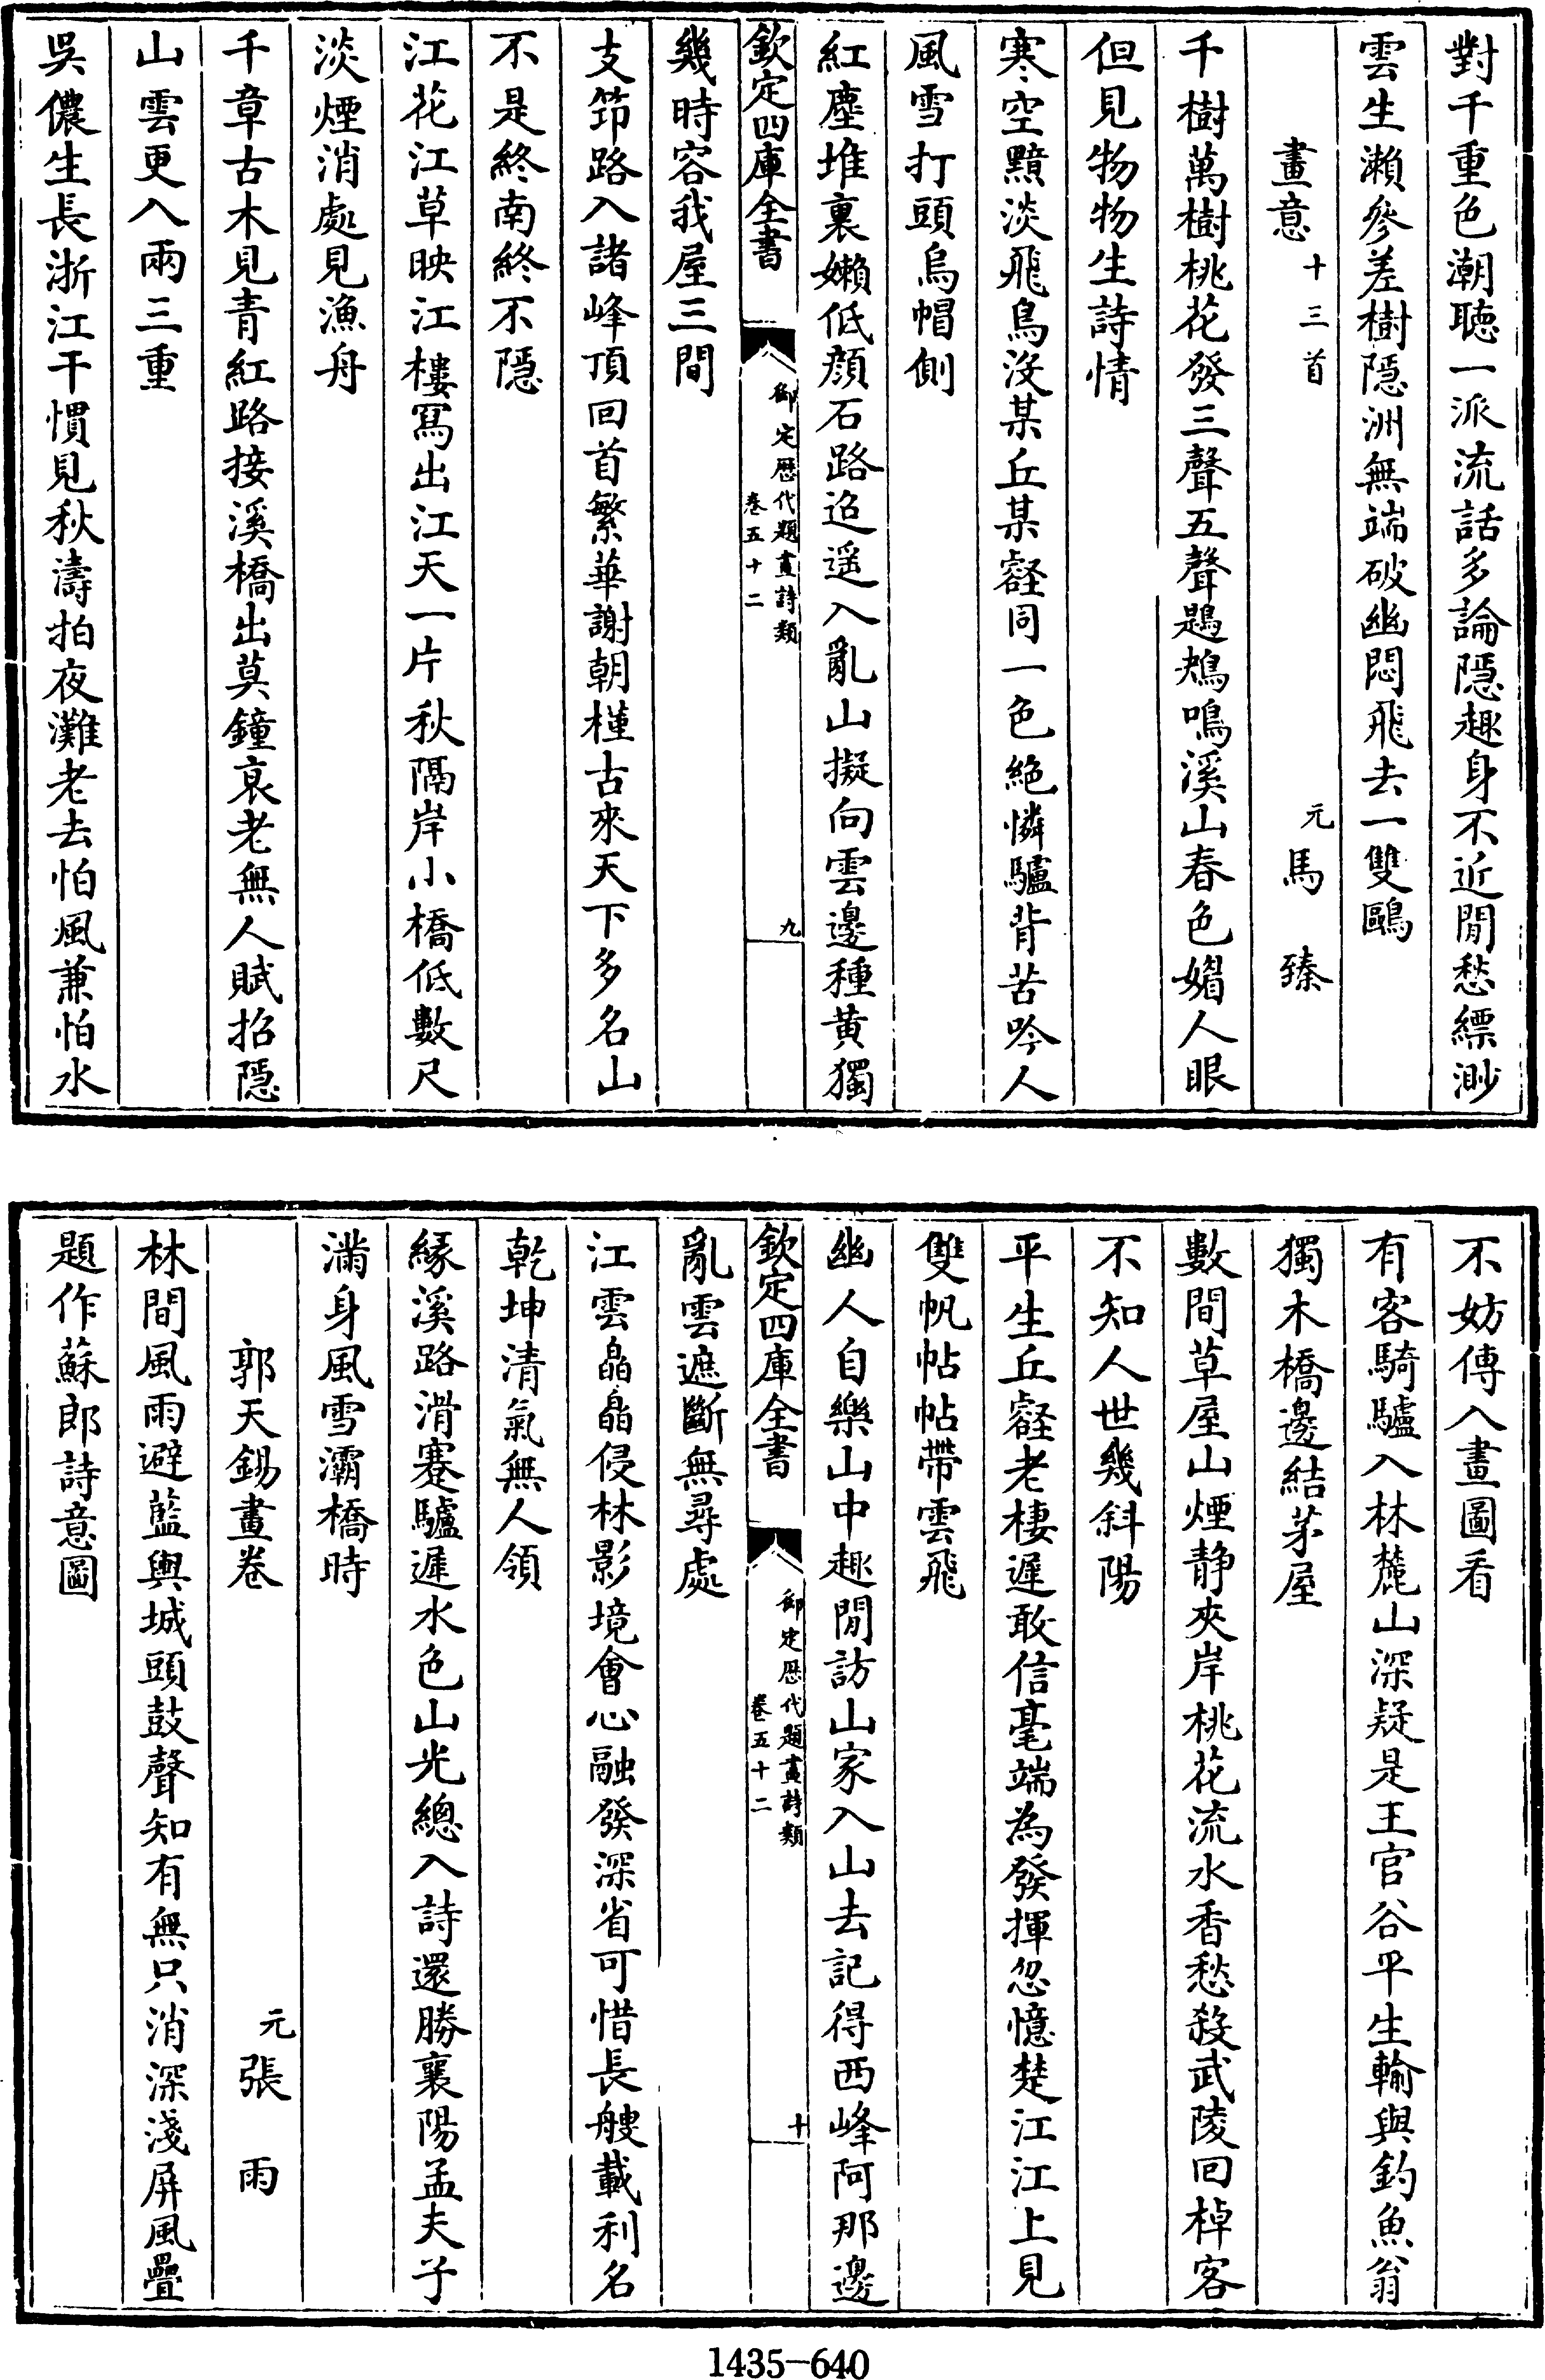 對千重色潮聽一派流話多論隱趣身不近閒愁縹渺
雲生瀨參差樹隱洲無端破幽悶飛去一雙鷗
畫意十三首 元馬臻
千樹萬樹桃花發三聲五聲鶗鴂鳴溪山春色媚人眼
但見物物生詩情
寒空黯淡飛鳥沒某丘某壑同一色絶憐驢背苦吟人
風雪打頭烏帽側
紅塵堆裏嬾低顔石路迢遥入亂山擬向雲邊種黄獨
欽定四庫全書 御定歴代題畫詩類 卷五十二 九
幾時容我屋三間
支笻路入諸峰頂回首繁華謝朝槿古來天下多名山
不是終南終不隱
江花江草映江樓寫出江天一片秋隔岸小橋低數尺
淡煙消處見漁舟
千章古木見青紅路接溪橋出莫鐘哀老無人賦招隱
山雲更入兩三重
吳儂生長浙江干慣見秋濤拍夜灘老去怕風兼怕水
不妨傳入畫圖看
有客騎驢入林麓山深疑是王官谷平生輸與釣魚翁
獨木橋邊結茅屋
數間草屋山煙静夾岸桃花流水香愁殺武陵回棹客
不知人世幾斜陽
平生丘壑老棲遲敢信毫端為發揮忽憶楚江江上見
雙帆帖帖帶雲飛
幽人自樂山中趣閒訪山家入山去記得西峰阿那邊
欽定四庫全書 御定歴代題畫詩類 卷五十二 十
亂雲遮斷無尋處
江雲皛皛侵林影境會心融發深省可惜長艘載利名
乾坤清氣無人領
緣溪路滑蹇驢遲水色山光總入詩還勝襄陽孟夫子
滿身風雪灞橋時
郭天錫畫卷 元張雨
林間風雨避藍輿城頭鼓聲知有無只消深淺屏風疊
題作蘇郎詩意圖
1435-640